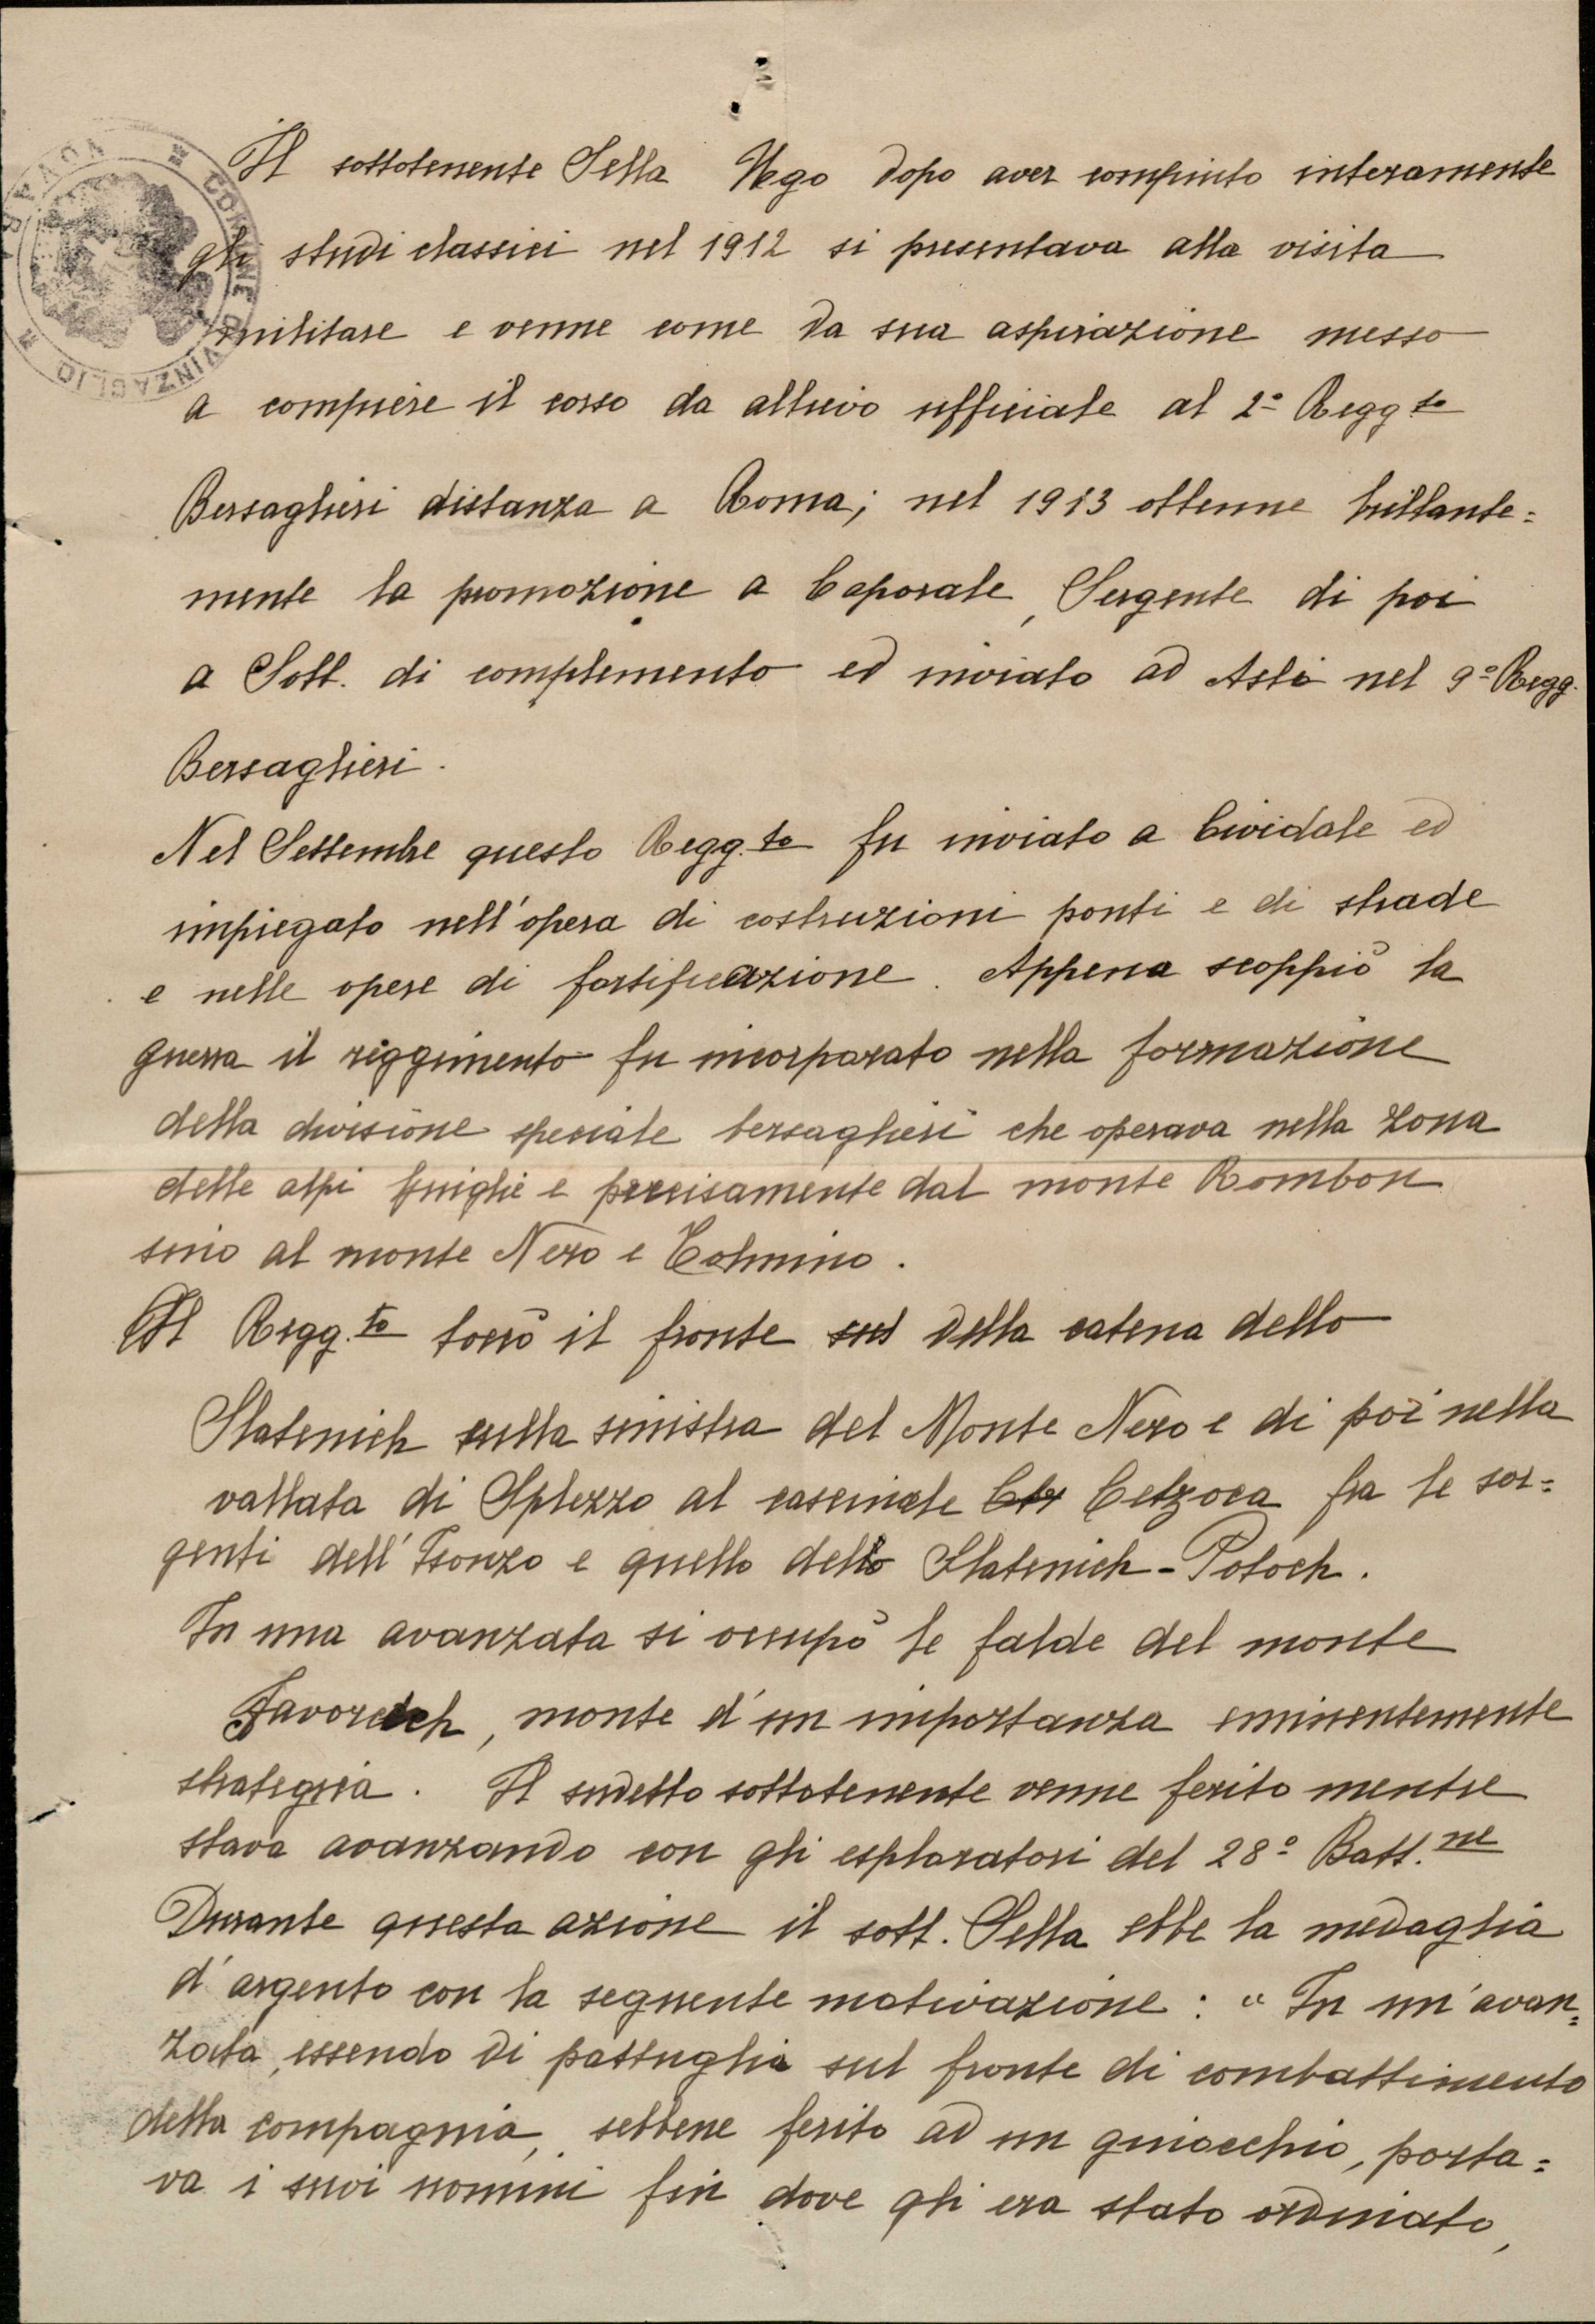 COMUNE DI VINZAGLIO NOVARA
Il sottotenente Sella Ugo dopo aver compiuto interamente
gli studi classici nel 1912 si presentava alla visita
militare e venne come da sua aspirazione messo
a compiere il corso da allievo ufficiale al 2° Regg.to
Bersaglieri distanza a Roma; nel 1913 ottenne brillante=
mente la promozione a Caporale, Sergente di poi
a Sott. di complemento ed inviato ad Asti nel 9° Regg.
Bersaglieri.
Nel Settembre questo Regg.to fu inviato a Cividale ed
impiegato nell'opera di costruzioni ponti e di strade
e nelle opere di fortificazione. Appena scoppiò la
guerra il reggimento fu incorporato nella formazione
della divisione speciale bersaglieri che operava nella zona
delle alpi Giuglie e precisamente dal monte Rombon
sino al monte Nero e Tolmino.
Il Regg.to toccò il fronte sud della catena dello
Slatenich sulla sinistra del Monte Nero e di poi nella
vallata di Splezzo al cascinale Cetzoca fra le sor=
genti dell'Isonzo e quello dello Slatenich-Potoch.
In una avanzata si occupò le falde del monte
Javorcech, monte d'un importanza eminentemente
strategica. Il sudetto sottotenente venne ferito mentre
stava avanzando con gli esploratori del 28° Batt.ne
Durante questa azione il sott. Sella ebbe la medaglia
d'argento con la seguente motivazione: "In un'avan=
zata, essendo di pattuglia sul fronte di combattimento
della compagnia, sebbene ferito ad un ginocchio, porta=
va i suoi uomini fin dove gli era stato ordinato,